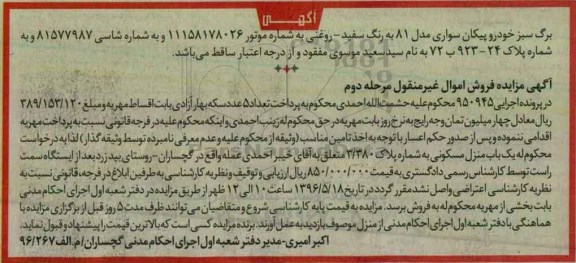 آگهی
برگ سبز خودرو پیکان سواری مدل ۸۱ به رنگ سفید - روغنی به شماره موتور ۱۱۱۵۸۱۷۸۰۲۶ و به شماره شاسی ۸۱۵۷۷۹۸۷ و به
شماره پلاک ۲۴ - ۹۲۳ ب ۷۲ به نام سیدسعید موسوی مفقود و از درجه اعتبار ساقط می‌باشد.
آگهی مزایده فروش اموال غیرمنقول مرحله دوم
در پرونده اجرایی ۹۵۰۹۴۵ محکوم علیه حشمت‌الله احمدی محکوم به پرداخت تعداد ۵ عدد سکه بهار آزادی بابت اقساط مهریه و مبلغ ۳۸۹/۱۵۳/۱۲۰
ریال معادل چهار میلیون تمان وجه رایج به نرخ روز بابت مهریه در حق محکوم له زینب احمدی و اینکه محکوم علیه در فرجه قانونی نسبت به پرداخت مهریه
اقدامی ننموده و پس از صدور حکم اعسار با توجه به اخذ تامین مناسب (وثیقه از محکوم علیه و عدم معرفی نامبرده توسط وثیقه گذار) لذا به درخواست
محکوم له یک باب منزل مسکونی به شماره پلاک ۳/۳۸۰ متعلق به آقای خیبر احمدی عمله واقع در گچساران - روستای بیدزرد بعد از ایستگاه سمت
راست توسط کارشناس رسمی دادگستری به قیمت ۸۵۰/۰۰۰/۰۰۰ ریال ارزیابی و توقیف و نظریه کارشناسی به طرفین ابلاغ در فرجه قانونی نسبت به
نظریه کارشناسی اعتراضی واصل نشد مقرر گردد در تاریخ ۱۳۹۶/۵/۱۸ ساعت ۱۰ الی ۱۲ ظهر از طریق مزایده در دفتر شعبه اول اجرای احکام مدنی
بابت بخشی از مهریه محکوم له به فروش برسد. مزایده به قیمت پایه کارشناسی شروع و متقاضیان می‌توانند ظرف مدت ۵ روز قبل از برگزاری مزایده با
هماهنگی با دفتر شعبه اول اجرای احکام مدنی از منزل موصوف بازدید به عمل آورند. برنده مزایده کسی است که بالاترین قیمت را پیشنهاد و قبول نماید.
اکبر امیری - مدیر دفتر شعبه اول اجرای احکام مدنی گچساران / م.الف ۹۶/۲۶۷